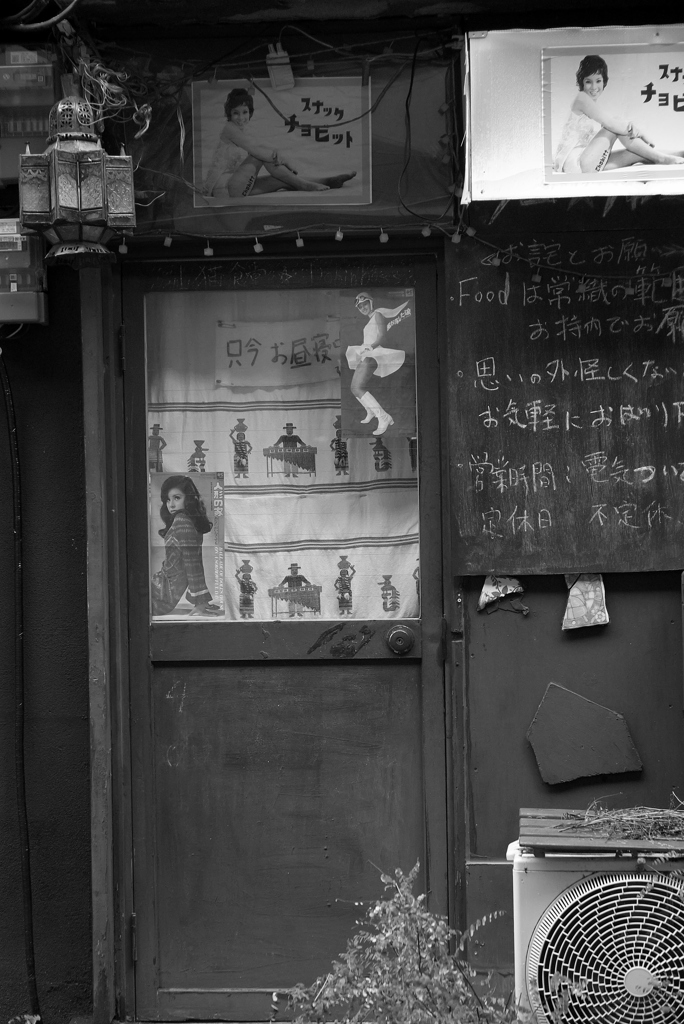 スナック
チョビット
スナッ
チョビ
CHOBITT
お詫とお願
・Food は常識の範囲
お持内でお願
只今 お昼寝の
・思いの外怪しくない
お気軽におはいり下
・営業時間：電気つい
定休日 不定休
人形の家